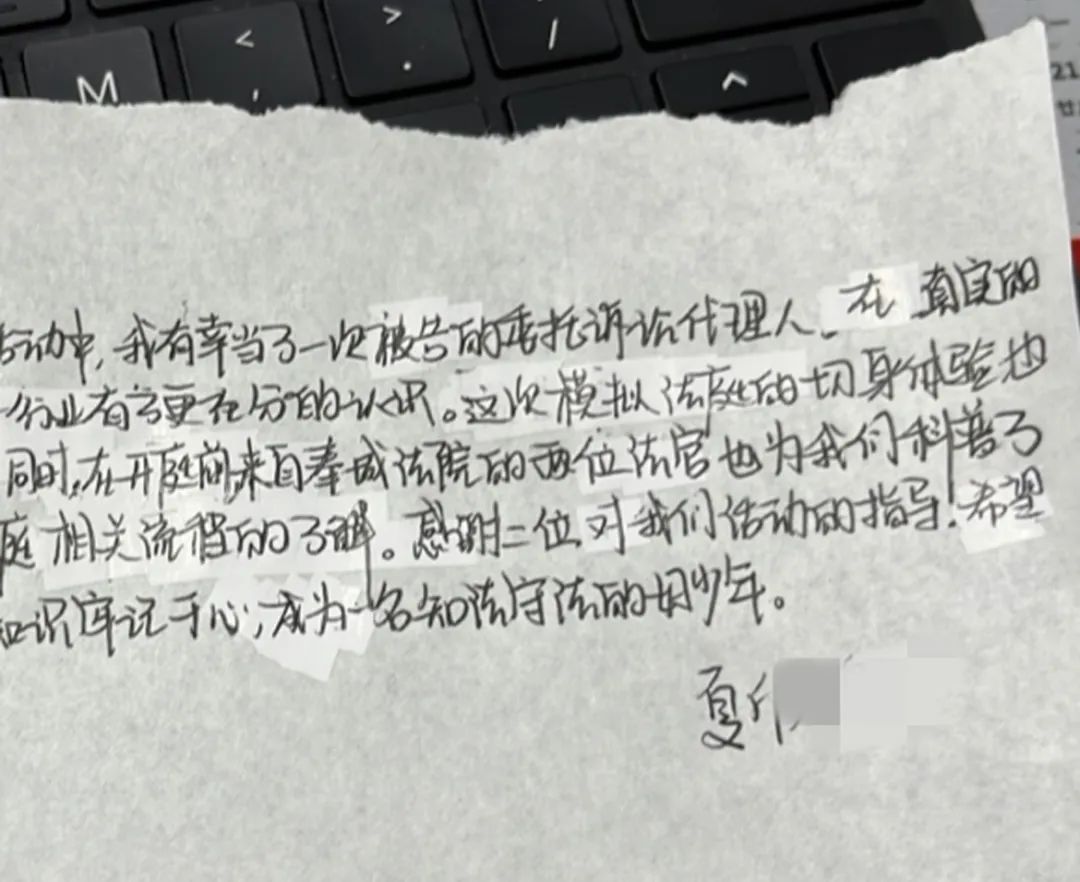 M < , > . / ^
21
活动中,我有幸当了一次被告的委托诉讼代理人。在真实的
行业有了更充分的认识。这次模拟法庭的切身体验也
同时,在开庭前,来自奉城法院的两位法官也为我们科普了
庭相关流程的了解。感谢二位对我们活动的指导!希望
知识牢记于心,成为一名知法守法的好少年。
夏